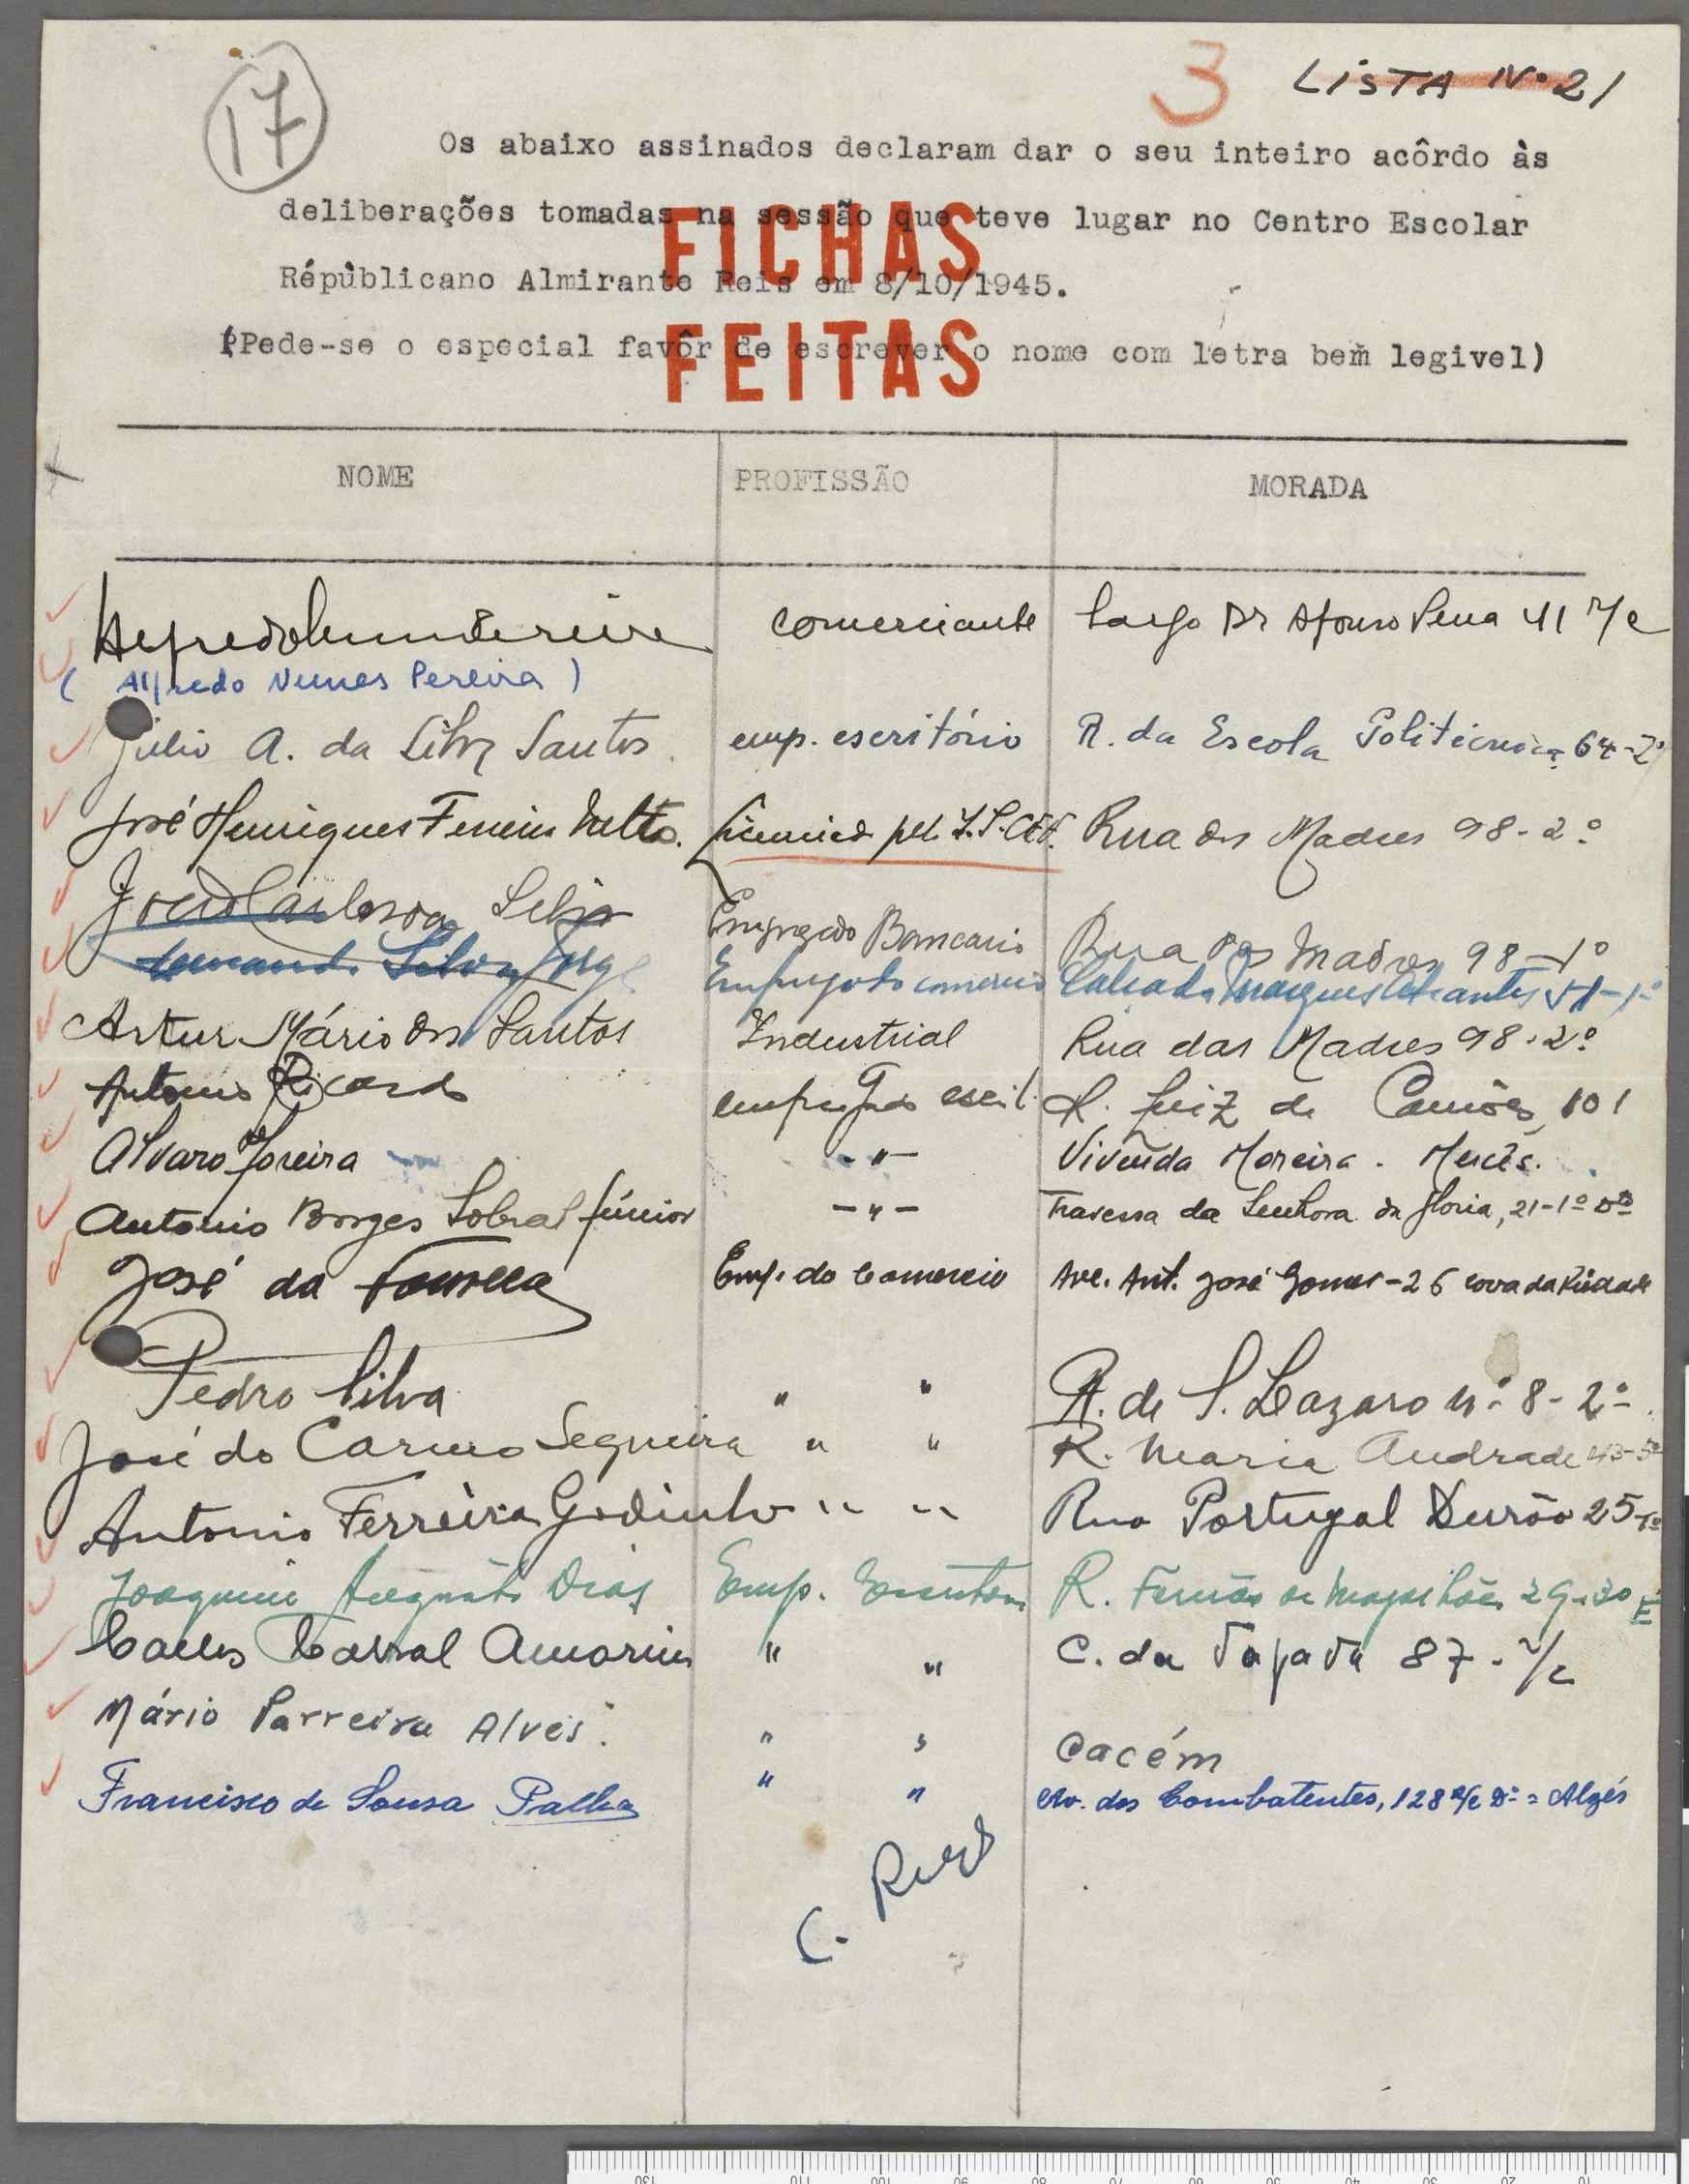 17
3 LiSTA Nº 21
Os abaixo assinados declaram dar o seu inteiro acôrdo às
deliberações tomadas na sessão que teve lugar no Centro Escolar
FICHAS
Républicano Almirante Reis em 8/10/1945.
(Pede-se o especial favôr de escrever o nome com letra bem legivel)
FEITAS
NOME PROFISSÃO MORADA
comerciante Largo Dr Afonso Pena 41 r/c
(Alfredo Nunes Pereira)
Júlio A. da Silva Santos emp. escritório R. da Escola Politécnica 64-2º
José Henriques Ferreira pelo Rua das Madres 98-2º
da Silva Empregado Bancario Rua das Madres 98-1º
Silva Jorge Empregado comercio Calçada Marquez Abrantes
Artur Mário dos Santos Industrial Rua das Madres 98-2º
Antonio Ricardo empregado escrit. R. Luiz de Camões, 101
Alvaro Moreira -"- Vivenda Moreira. Mercês.
Antonio Borges Sobral Júnior -"- Travessa da Senhora da Gloria, 21-1º Dtº
José da Fonseca Emp. do Comercio Ave. Ant. José Gomes-26 Cova da Piedade
Pedro Silva " " R. de S. Lazaro nº 8-2º
José do Carmo Segueira " " R. Maria Andrade
Antonio Ferreira Godinho " " Rua Portugal Durão 25-1º
Joaquim Augusto Dias Emp. Escritorio R. Fernão de Magalhães 29-3º E
Carlos Cabral Amorim " " C. da Tapada 87-r/c
Mário Parreira Alves. " " Cacém
Francisco de Sousa Palha " " Av. dos Combatentes, 128 R/c Dº = Algés
C.